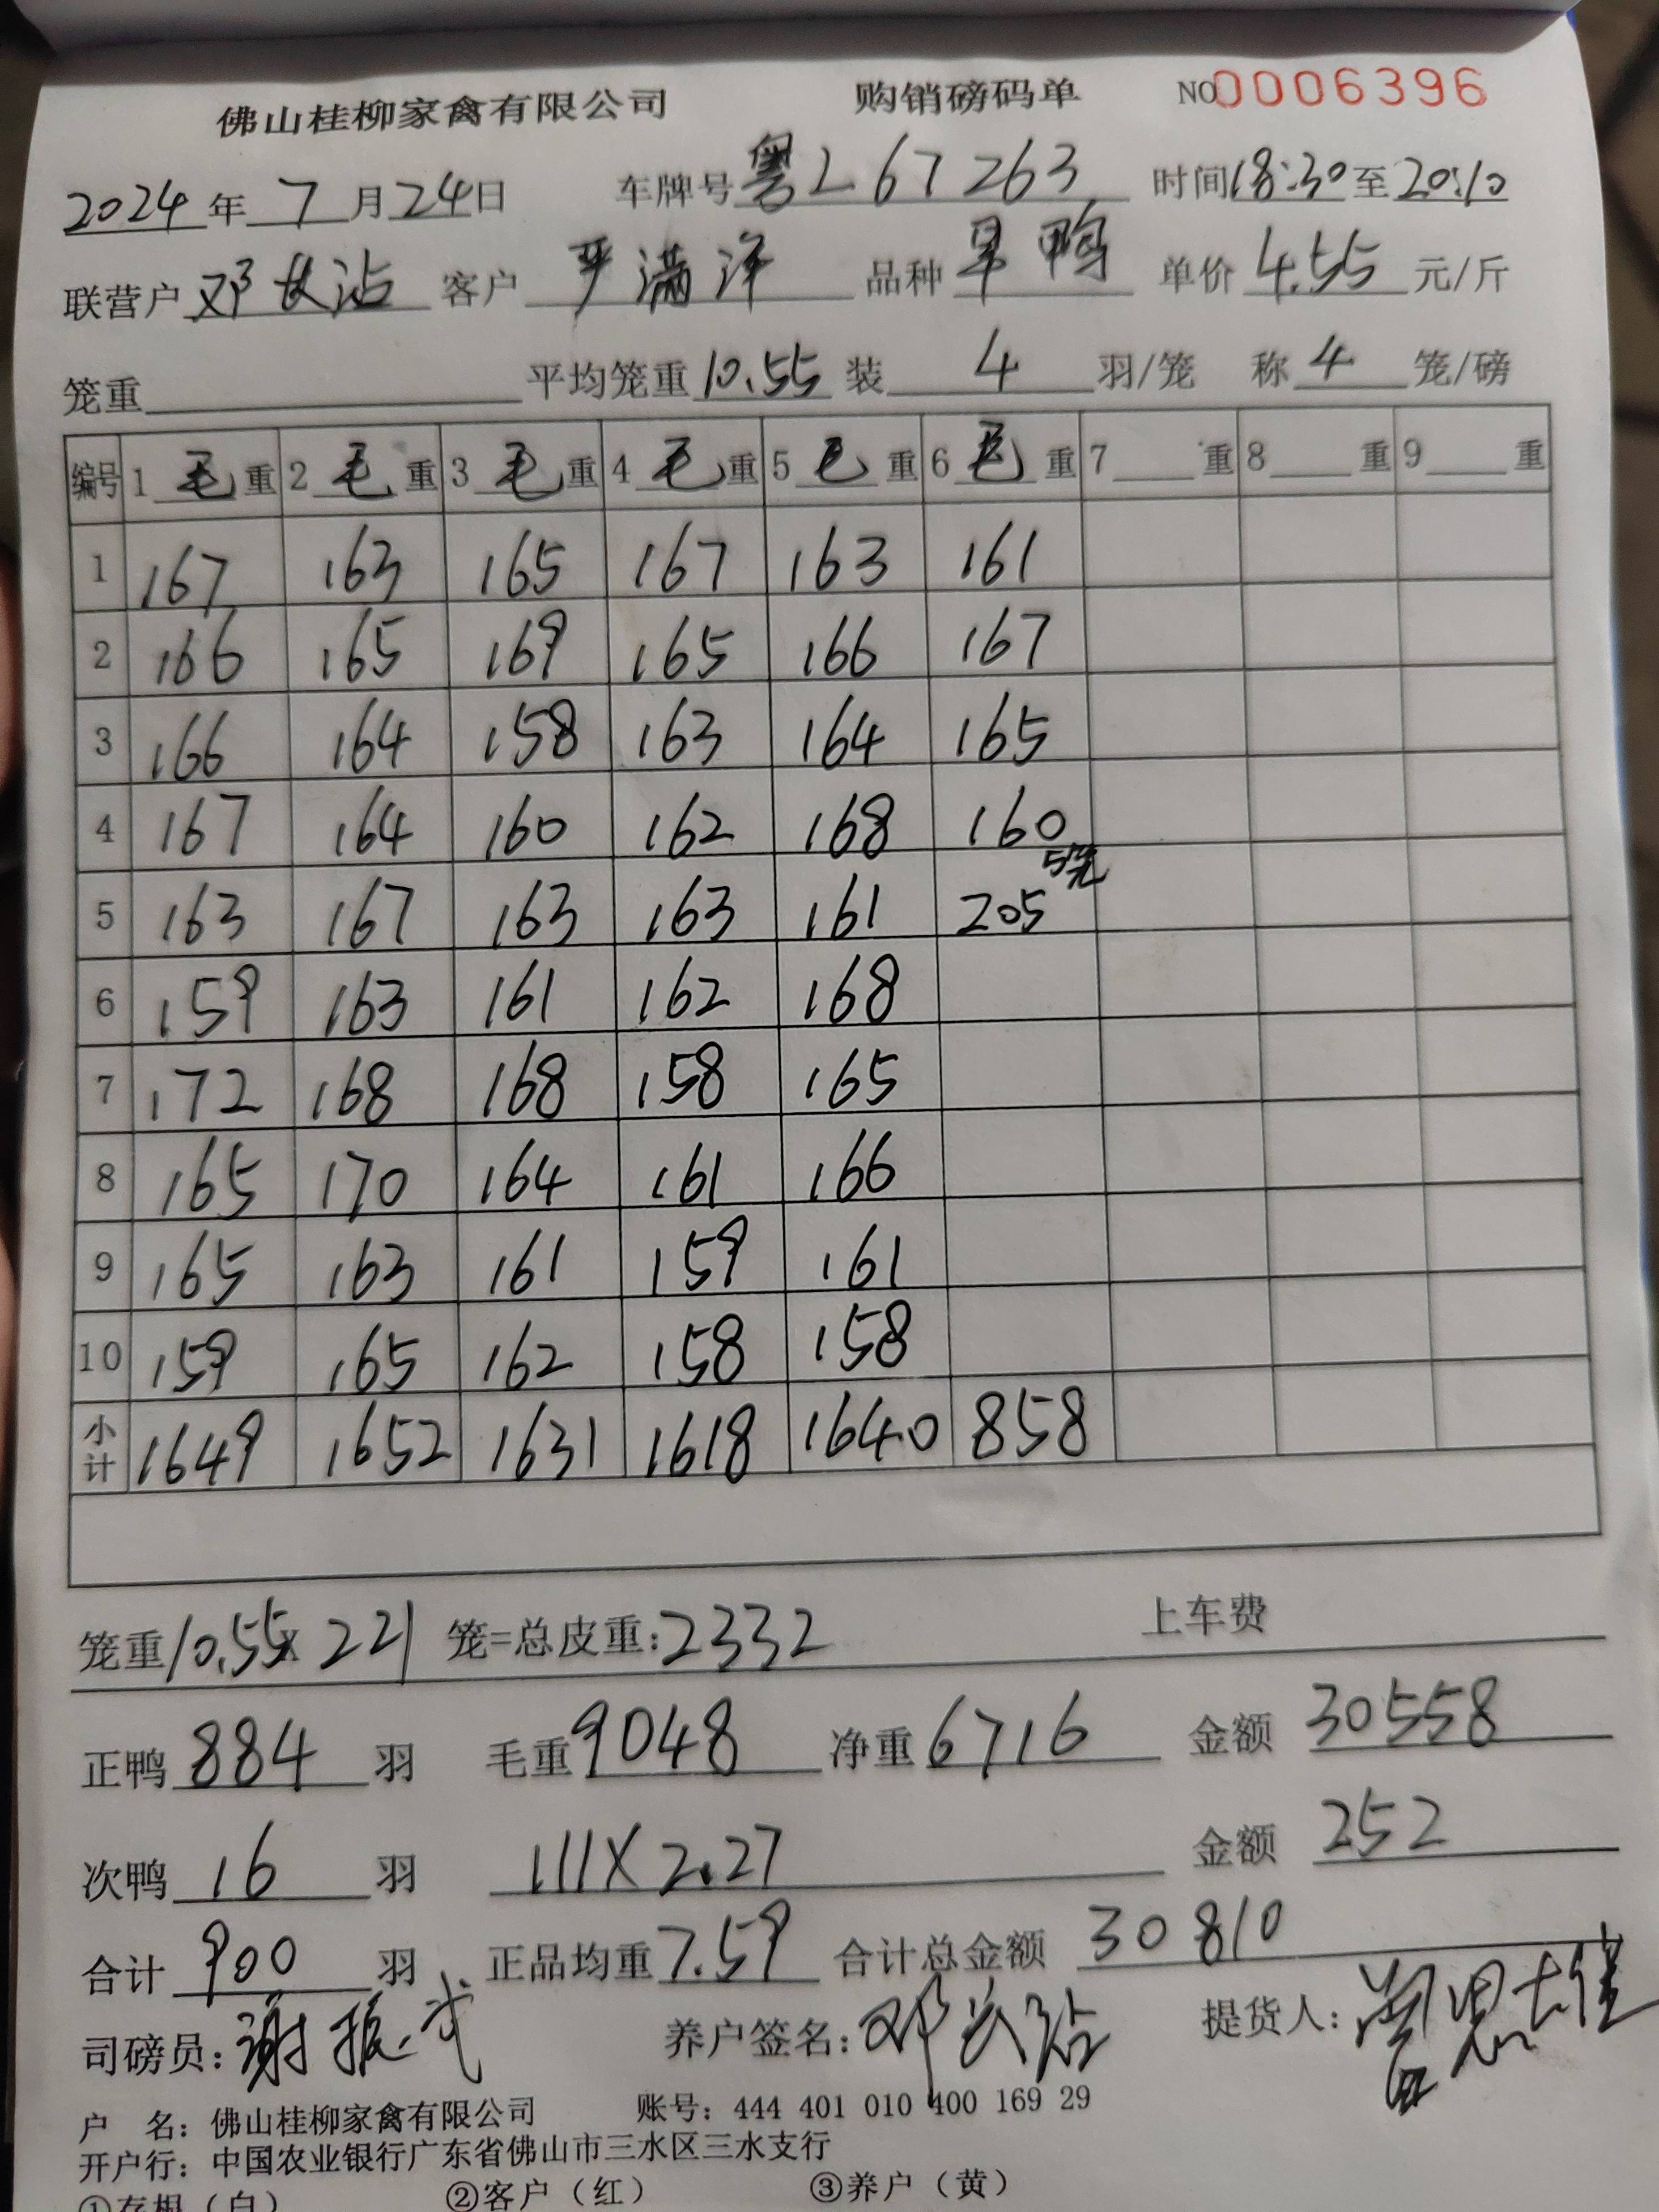 佛山桂柳家禽有限公司 购销磅码单 NO 0006396
2024年7月24日 车牌号粤L67263 时间18:30至20:10
联营户邓长沾 客户严满洋 品种旱鸭 单价4.55元/斤
笼重 平均笼重10.55装4羽/笼 称4笼/磅
编号 1毛重 2毛重 3毛重 4毛重 5毛重 6毛重 7重 8重 9重
1 167 163 165 167 163 161
2 166 165 169 165 166 167
3 166 164 158 163 164 165
4 167 164 160 162 168 160
5 163 167 163 163 161 205 5笼
6 159 163 161 162 168
7 172 168 168 158 165
8 165 170 164 161 166
9 165 163 161 159 161
10 159 165 162 158 158
小计 1649 1652 1631 1618 1640 858
笼重10.55x221笼=总皮重:2332 上车费
正鸭884羽 毛重9048净重6716 金额30558
次鸭16羽 111X2.27 金额252
合计900羽 正品均重7.59 合计总金额30810
司磅员:谢振 养户签名:邓长沾 提货人:
户 名:佛山桂柳家禽有限公司 账号:444 401 010 400 169 29
开户行:中国农业银行广东省佛山市三水区三水支行
①存根(白) ②客户(红) ③养户(黄)